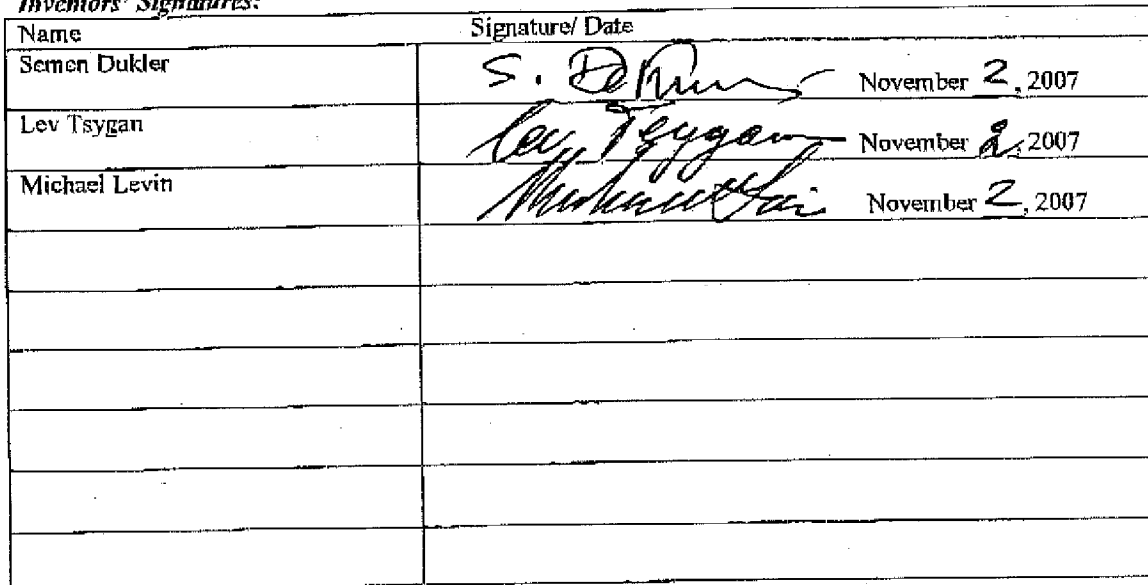 Inventors' Signatures:
Name Signature/ Date
Semen Dukler S. November 2, 2007
Lev Tsygan Lev Tsygan November 2, 2007
Michael Levin November 2, 2007